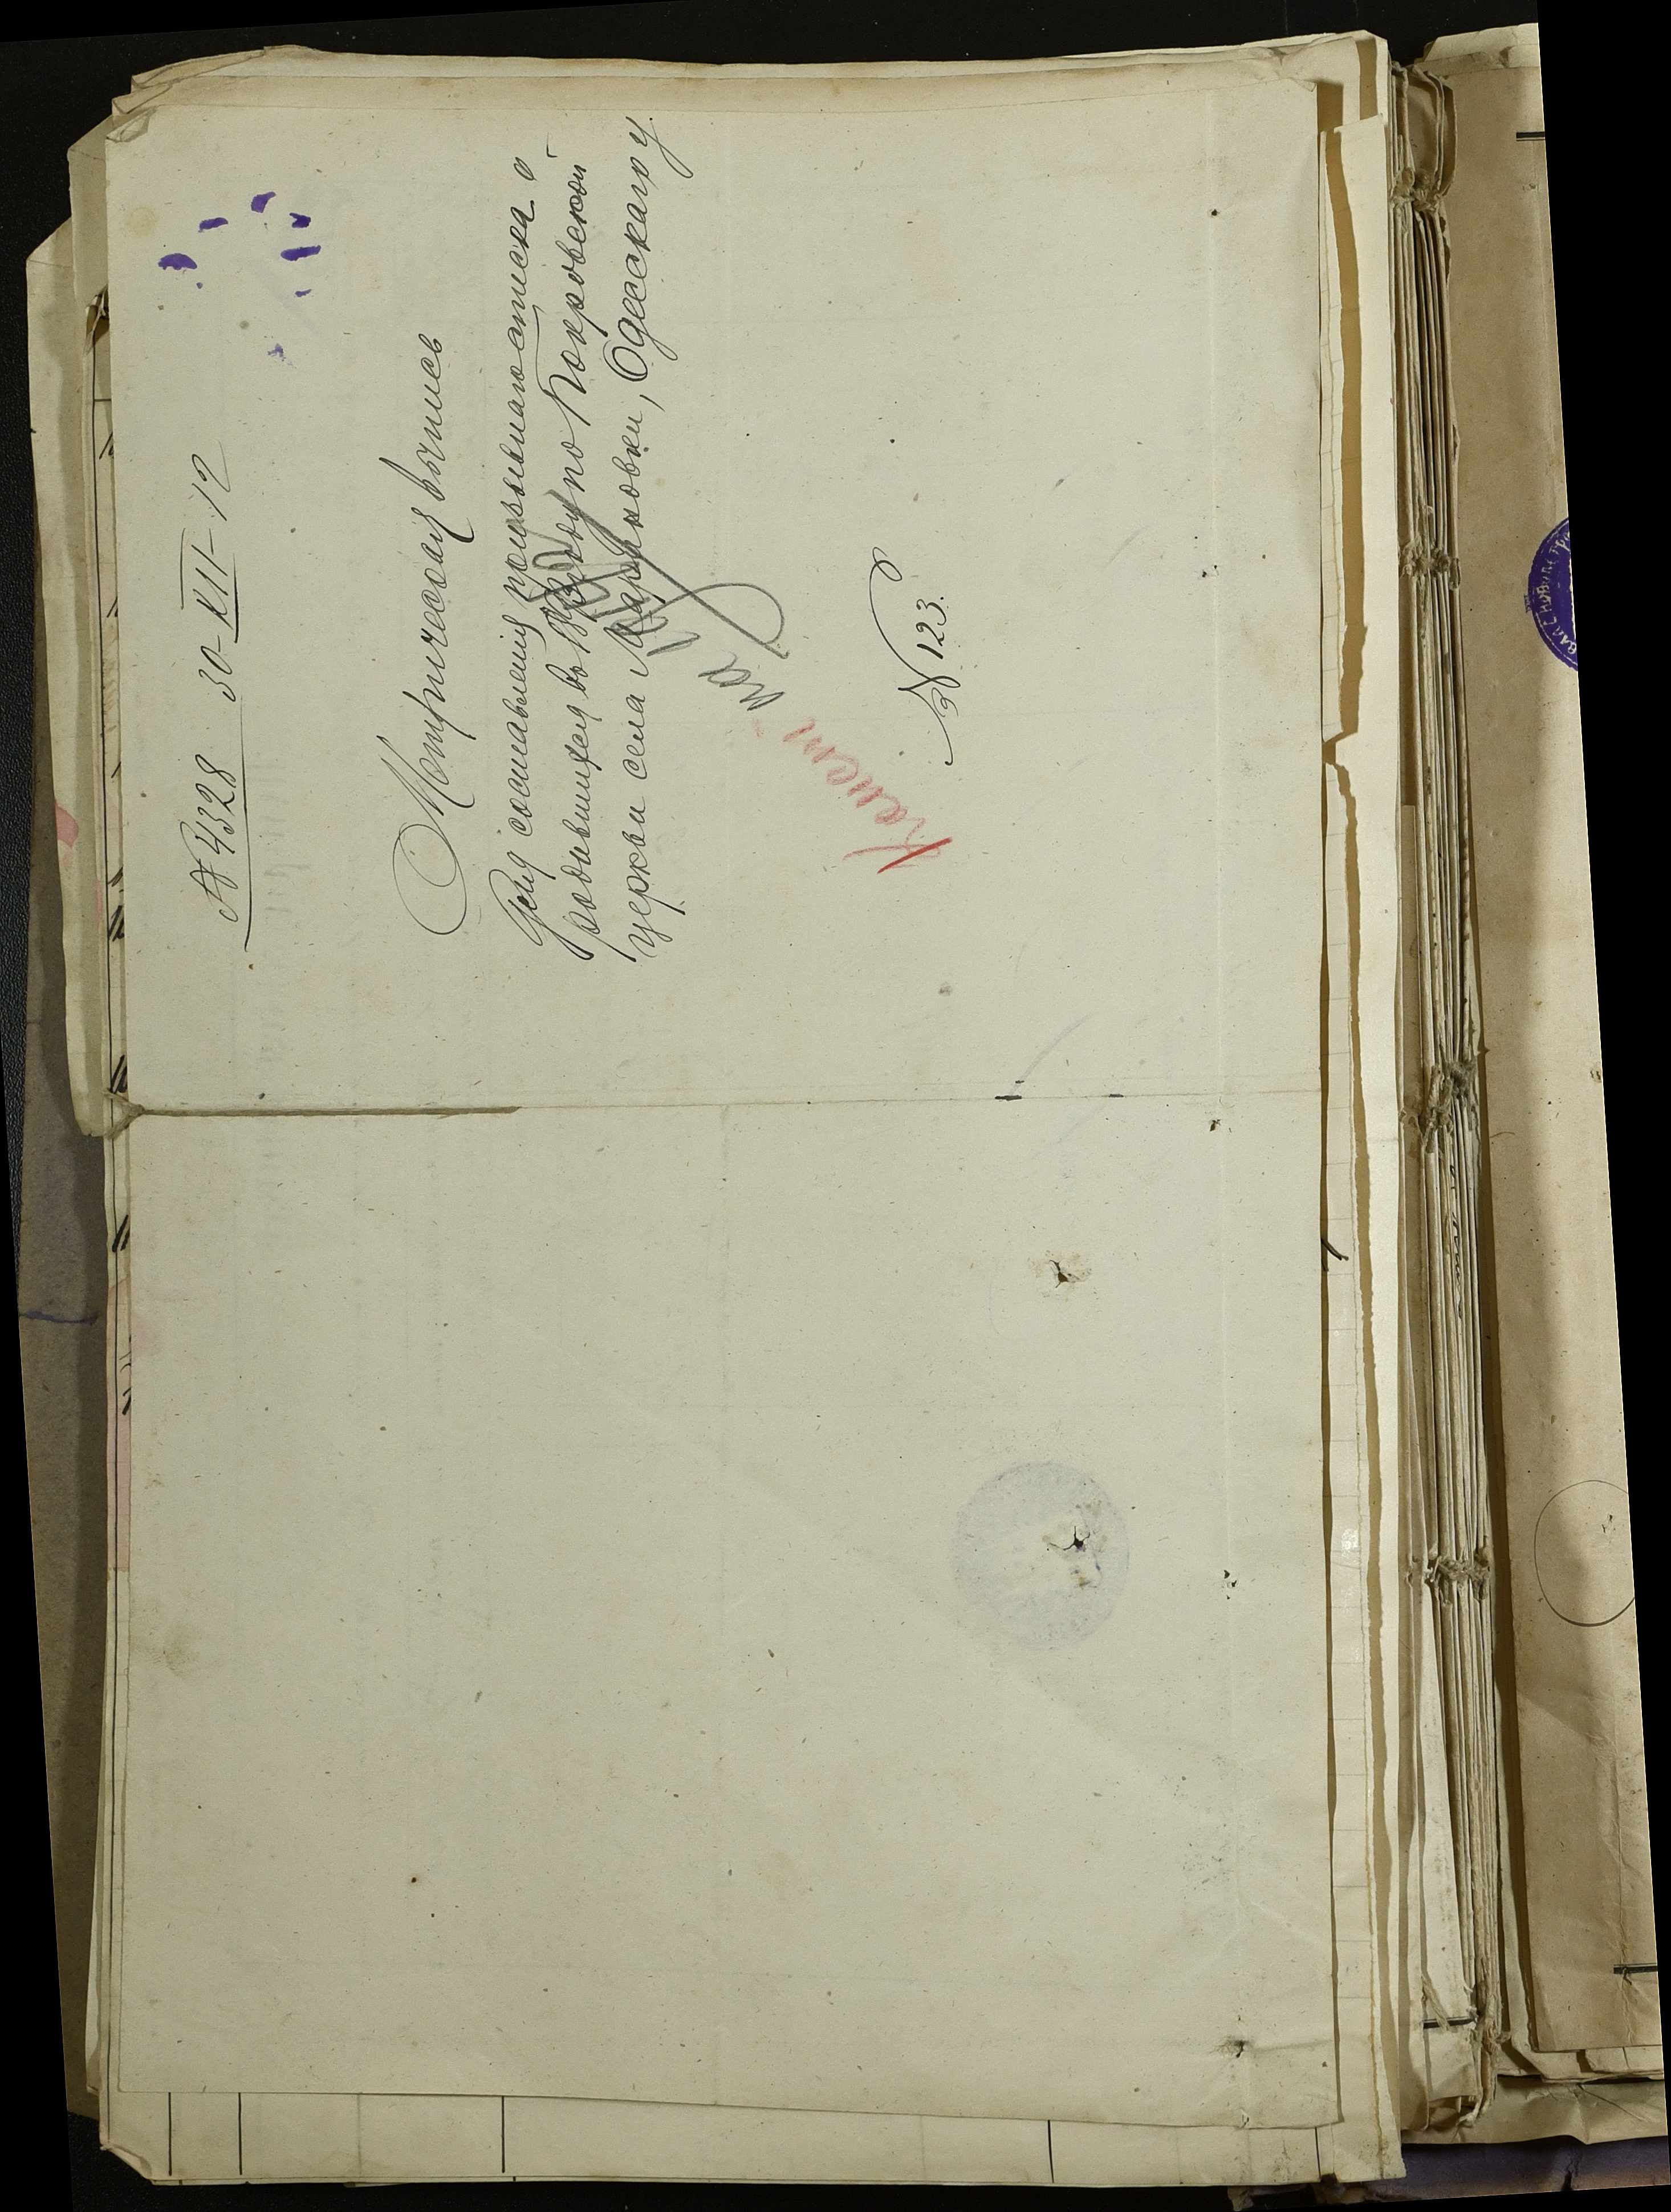 № 4328 30-XII-12
Метрическая выпись
для составления призывнаго списка о
родившихся в по Покровской
церкви села Марьяновки, Одесскаго у.
на
№ 123.